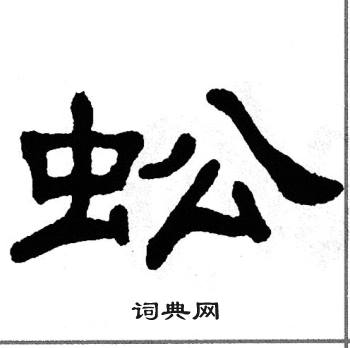 蚣
词典网